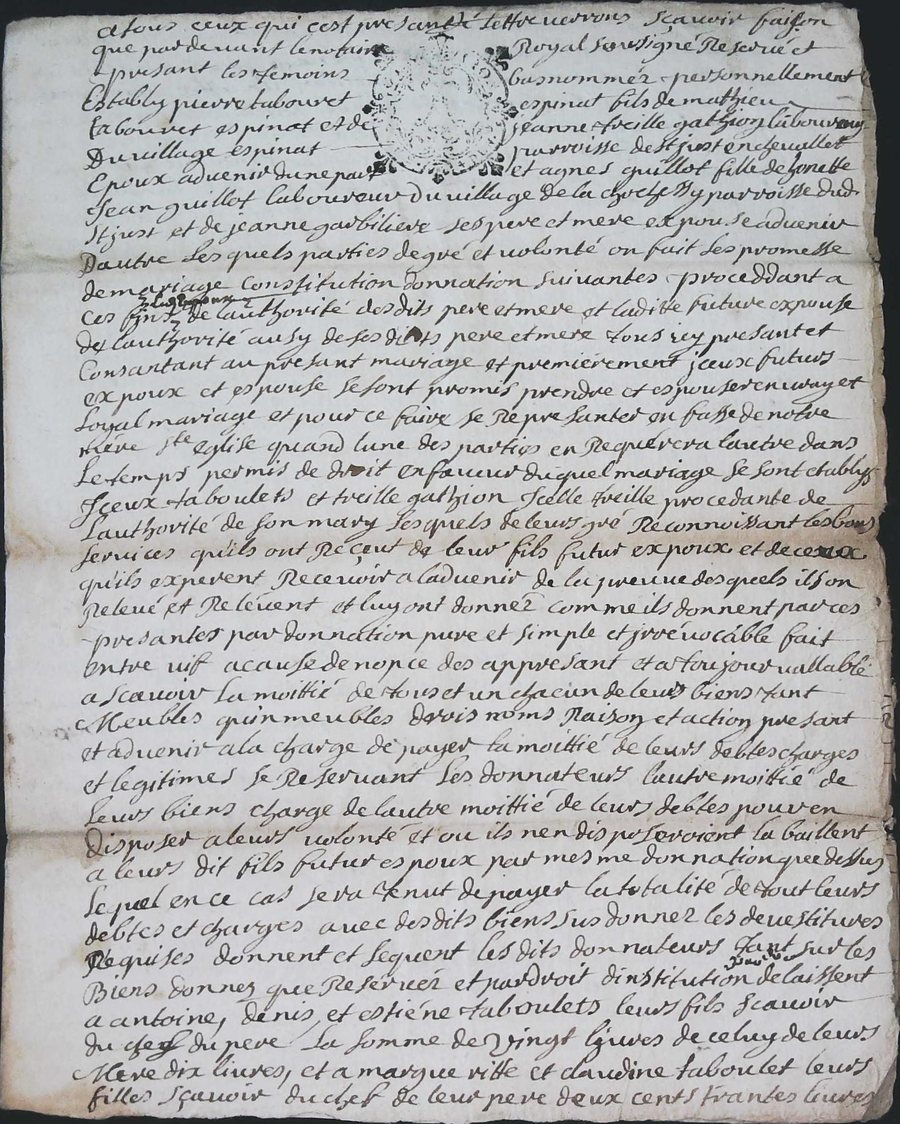 a tous ceux qui cest presante lettre verrons sçavoir faison
que par devant le notaire Royal sousigné Reservé et
presant les temoins bas nommez personnellement
Estably pierre tabouret espinat fils de mathieu
tabouret espinat et de jeanne treille gathion laboureurs
Du village espinat parroisse de st just en chevallet
Epoux advenir dune part et agnes guillot fille de honette
Jean guillot laboureur Du village de la parroisse dud
St just et de jeanne garbiliere ses pere et mere expouse advenir
Dautre Les quels parties de gré et volonté on fait les promesse
de mariage Constitution donnation suivantes proceddant a
ces fins de lauthorité desdits pere et mere et ladite future expouse
de lauthorité ausy de ses dits pere et mere tous icy presant et
Consantant au presant mariage et premierement jceux futurs
expoux et espouse se sont promis prendre et espouser en vray et
Loyal mariage et pour ce faire se Represanter en fasse de notre
mere ste eglise quand lune des parties en Requerera lautre dans
Le temps permis de droit en faveur du quel mariage se sont etablys
Jceux taboulets et treille gathion Jcelle treille procedante de
Lauthorité de son mary Lesquels de leurs gré Reconnoissant les bons
services quils ont Reçeut de leur fils futur expoux et de ceux
quils experent Recevoir a ladvenir de la preuve desquels ils on
Relevé et Relevent et luy ont donnéz comme ils donnent par ces
presantes par donnation pure et simple et jrrevocable fait
Entre vif a cause de nopce des appresant et a toujour vallable
a scavoir La moittié de tous et un chacun de leurs biens tant
Meubles quinmeubles drois noms Raison et action presant
et advenir a la charge de payer la moittié de leurs debtes charges
et legitimes se Reservant Les donnateurs lautre moittié de
Leurs biens charge de lautre moittié de leurs debtes pour en
Disposer a leurs volonté et ou ils nen disposeroient la baillent
a leurs dit fils futur espoux par mesme donnation que dessus
Lequel en ce cas sera tenut de payer la totalité de tout leurs
debtes et charges avec desdits biens sus donnez les devestitures
Requises donnent et leguent les dits donnateurs tant sur les
Biens donnez que Reservéz et par droit dinstitution delaissent
a antoine, denis, et estiéne taboulets leurs fils scavoir
du chef du pere La somme de vingt livres de celuy de leurs
Mere dix livres, et a marque ritte et claudine taboulet leurs
filles sçavoir du chef de leur pere deux cents trantes livres